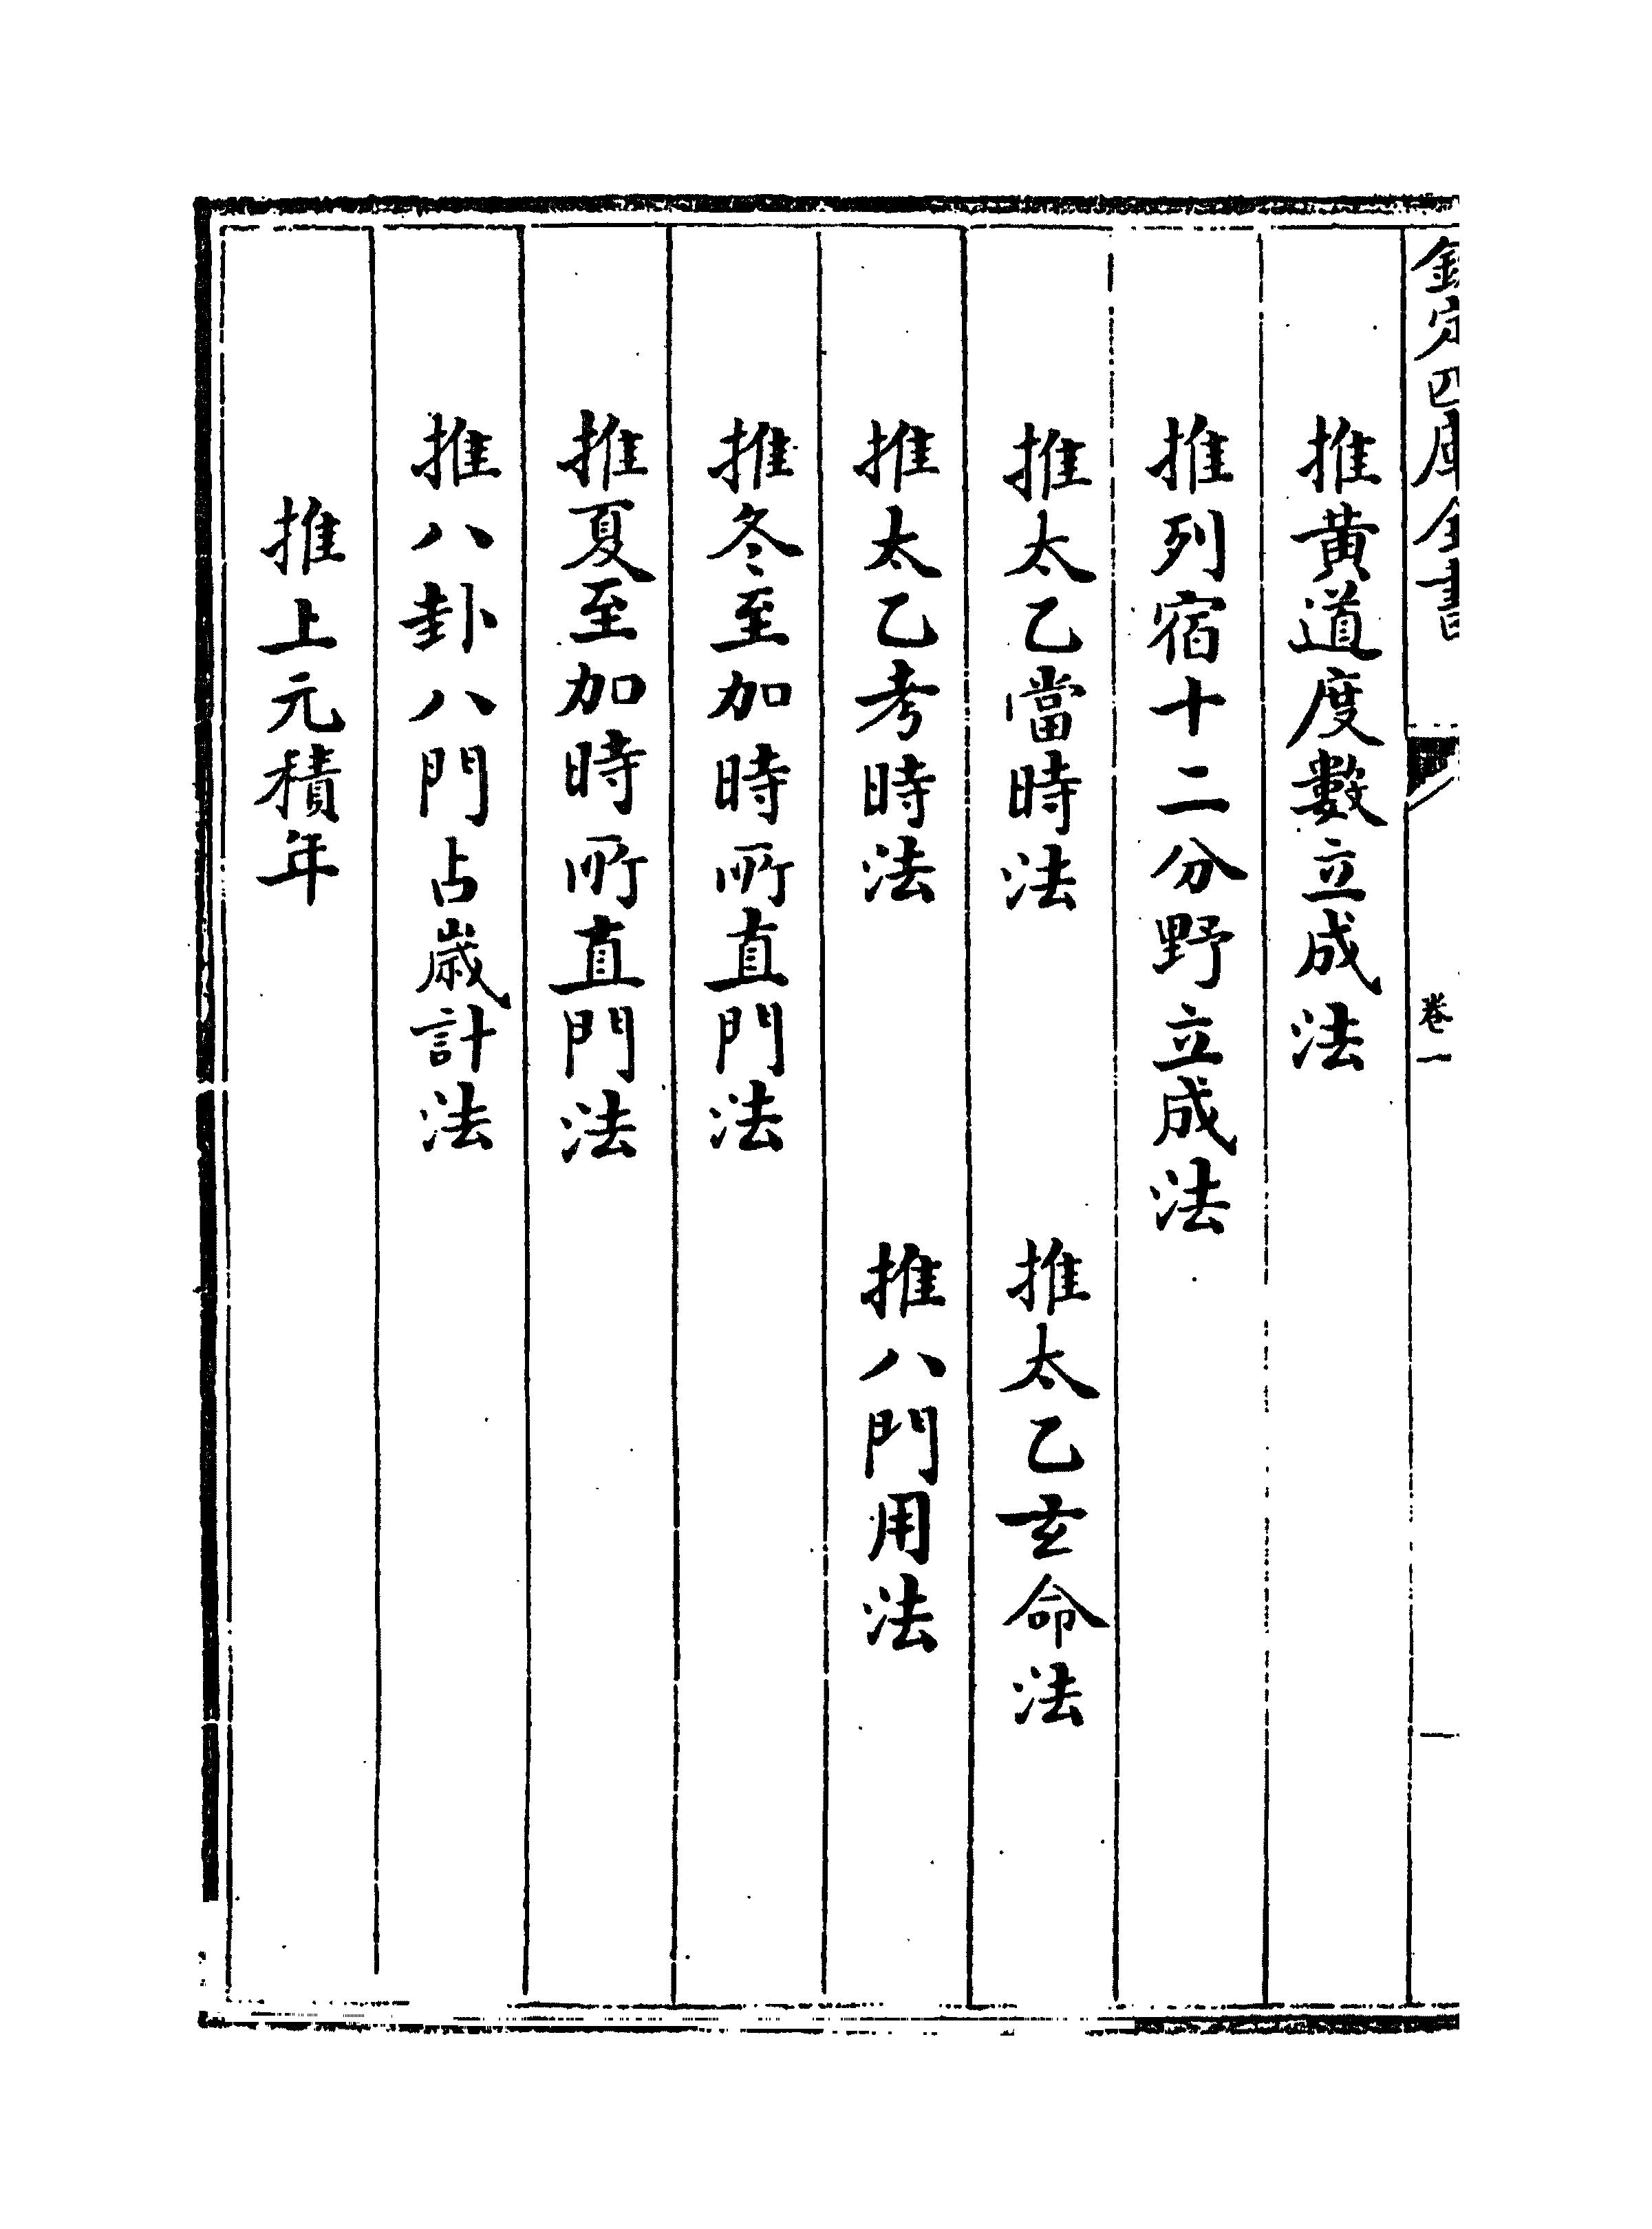 欽定四庫全書 卷一
推黄道度數立成法
推列宿十二分野立成法
推太乙當時法 推太乙玄命法
推太乙考時法 推八門用法
推冬至加時所直門法
推夏至加時所直門法
推八卦八門占歲計法
推上元積年